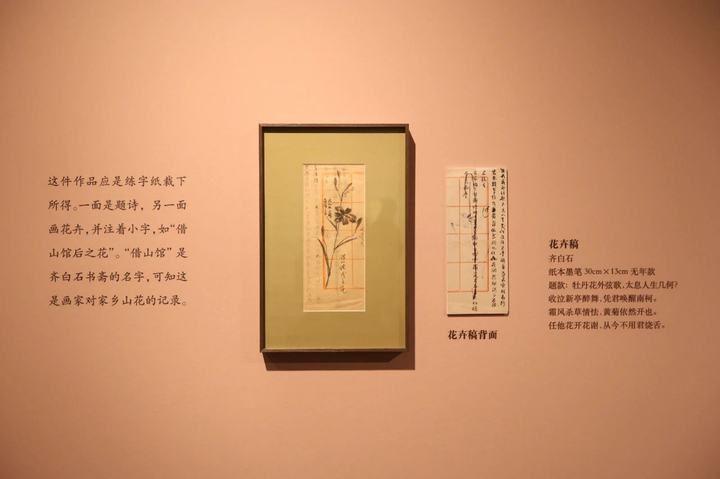 这件作品应是练字纸裁下
所得。一面是题诗，另一面
画花卉，并注着小字，如“借
山馆后之花”。“借山馆”是
齐白石书斋的名字，可知这
是画家对家乡山花的记录。
花卉稿背面
花卉稿
齐白石
纸本墨笔 30cm×13cm 无年款
题款：牡丹花外弦歌，太息人生几何？
收泣新亭醉舞，凭君唤醒南柯。
霜风杀草情怯，黄菊依然开也。
任他花开花谢，从今不用君饶舌。